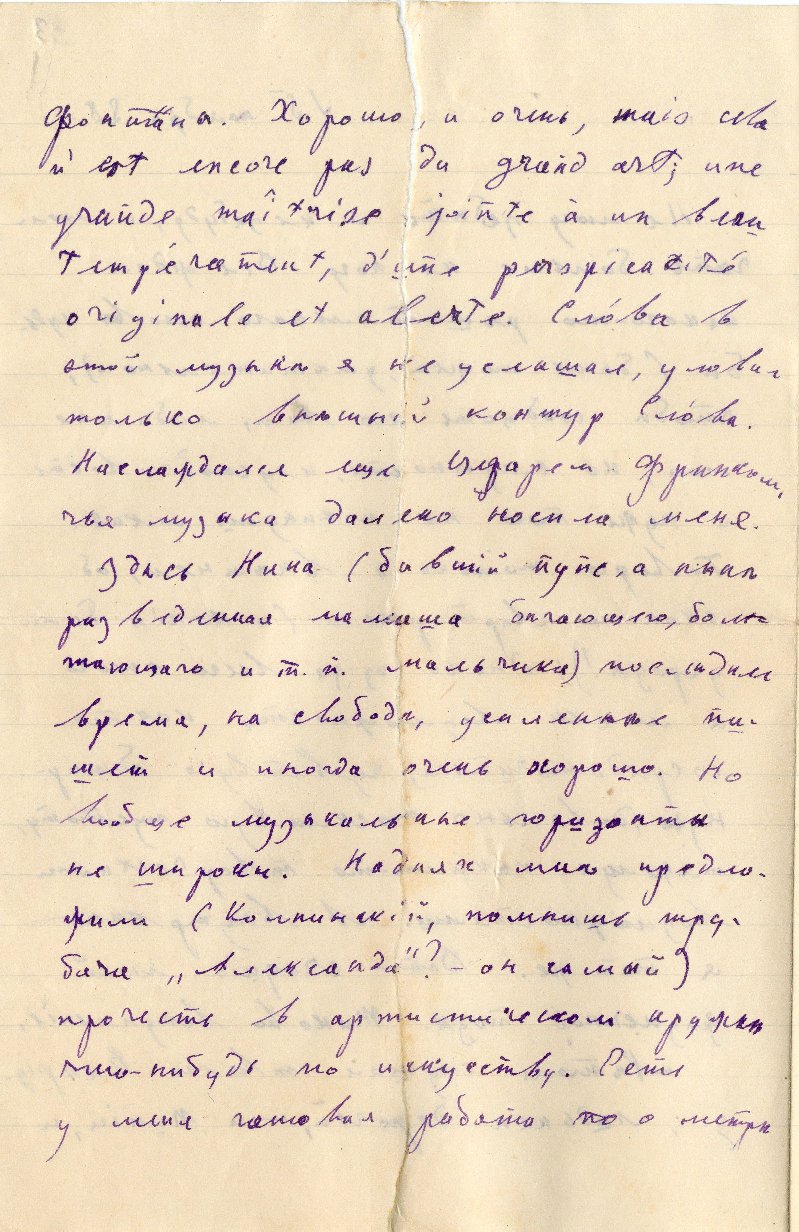 фонтаны. Хорошо, и очень, mais cela
n'est encore pas du grand art; une
grande maîtrise jointe à un beau
tempérament, d'une perspicacité
originale et alerte. Сло́ва в
этой музыкѣ я не услышал, уловил
только внѣшній контур Сло́ва.
Наслаждался еще Цезарем Франком,
чья музыка далеко носила меня.
Здѣсь Нина (бывшій пупс, а нынѣ
разведенная мамаша бѣгающего, бол-
тающаго и т. п. мальчика) послѣднее
время, на свободѣ, усиленные пи-
шет и иногда очень хорошо. Но
вообще музыкальные горизонты
не широки. Надняx мнѣ предло-
жили (Колпинскій, помнишь тру-
бача „Александа"? – он самый)
прочесть в артистическом кружкѣ
что-нибудь по искусству. Есть
у меня готовая работа о метрѣ